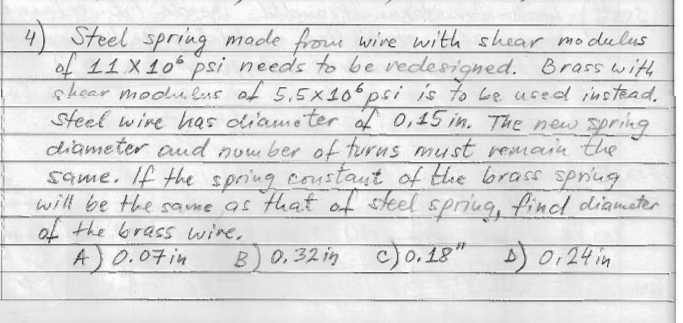 4) Steel spring made from wire with shear modulus
of 11 X 10⁶ psi needs to be redesigned. Brass with
shear modulus of 5,5×10⁶ psi is to be used instead.
Steel wire has diameter of 0,15 in. The new spring
diameter and number of turns must remain the
same. If the spring constant of the brass spring
will be the same as that of steel spring, find diameter
of the brass wire.
A) 0.07 in B) 0,32 in C) 0.18" D) 0,24 in